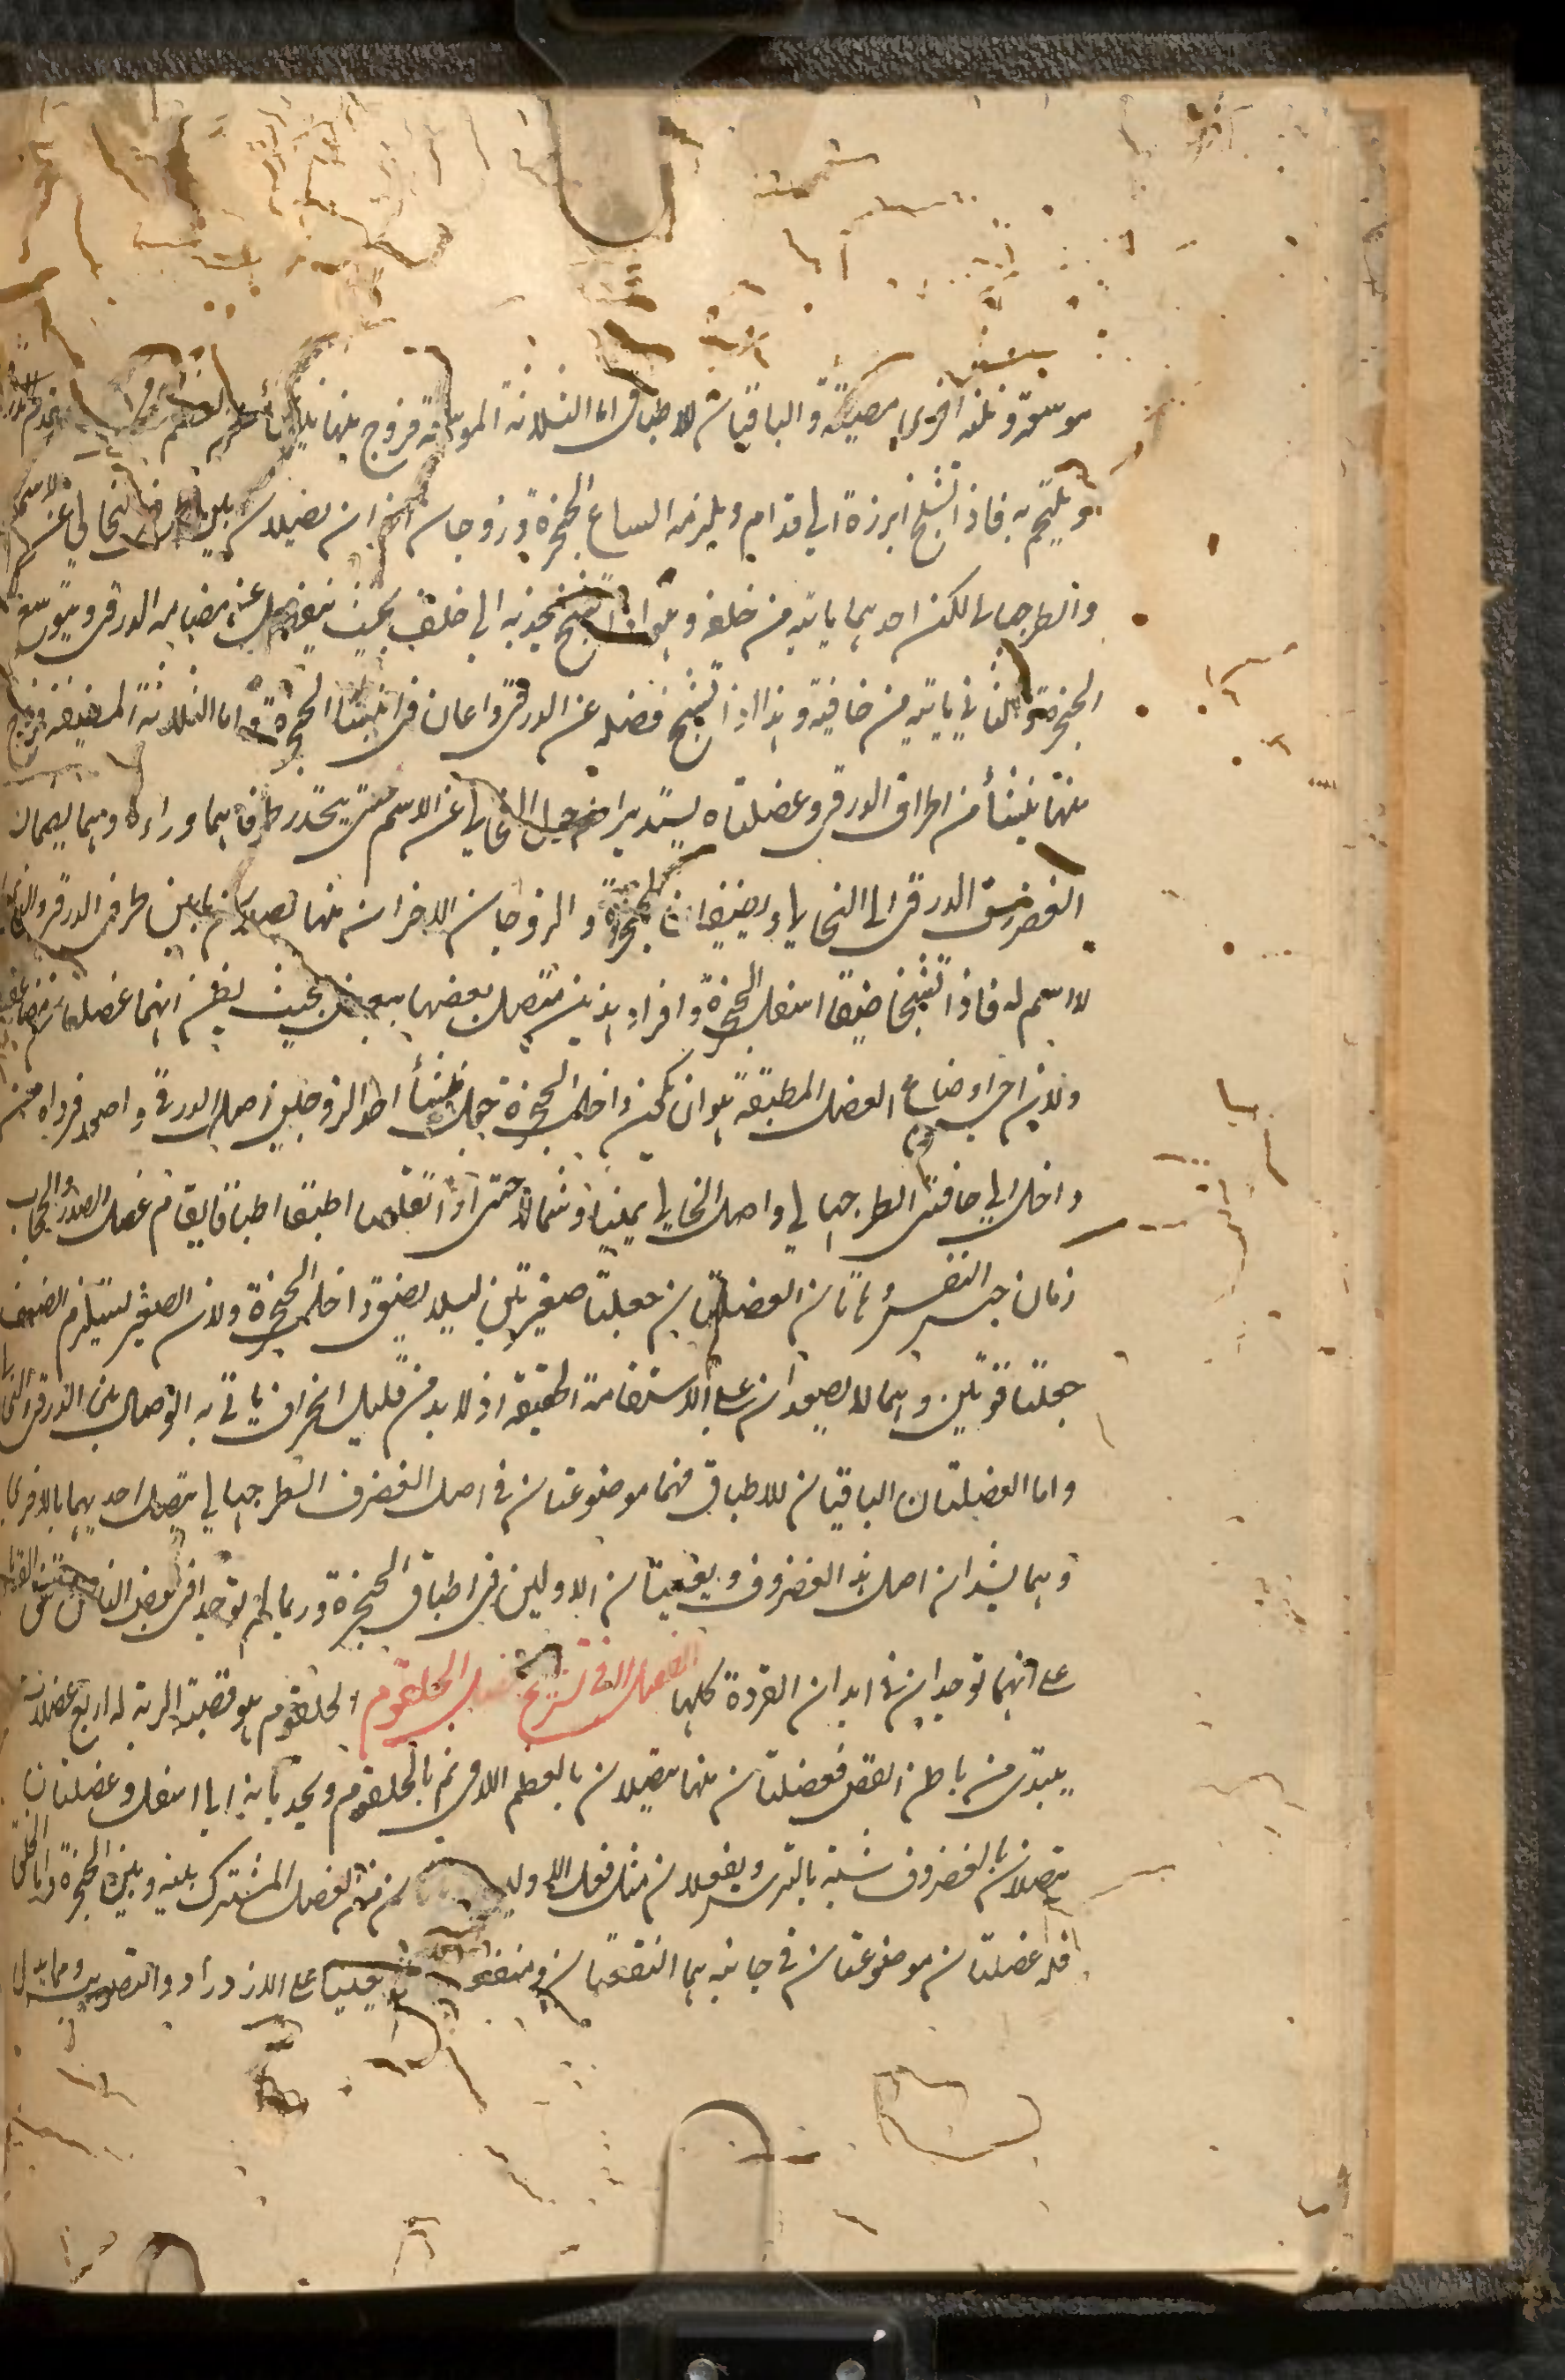 موسعة وثلثه اخرى مضيقة والباقيان للاطباق اما الثلاثة الموسعة فزوج منها ينشأ من العظم
ويلتحم به فاذا تشنج ابرزه الى قدام ويلزمه اتساع الحنجرة وزوجان اخران يصلان بين الذى لا اسم
والطرجهالى لكن احدهما ياتيه من خلف وهو اذا تشنج يجذبه الى خلف بحيث ينفصل عن مضامه الدرقى ويتوسع
الحنجرة والثانى ياتيه من حافيته وهذا اذا تشنج فصله عن الدرقى واعان فى انبساط الحنجرة واما الثلاثة المضيقة فزوج
منها ينشأ من اطراف الدرقى وعضلتاه يستديران حول الخالى عن الاسم حتى يتحد طرفاهما وراءه وهما يضمان
الغضروف الدرقى الى الخالى ويضيقان الحنجرة والزوجان الاخران منها يصلان ما بين طرفى الدرقى والذى
لا اسم له فاذا تشنجا ضيقا اسفل الحنجرة وافراد هذين متصل بعضها ببعض بحيث يظن انهما عضلتان مضاعفتان
ولان احق اوضاع العضل المطبقة هو ان يكون داخل الحنجرة جعل منشأ احد الزوجين اصل الدرقى واصعد فرداه من
داخل الى حافتى الطرجهالى واصل الخالى يمينا وشمالا حتى اذا تقلصا اطبقا اطباقا يقاوم عضل الصدر والحجاب
زمان حبس النفس وهاتان العضلتان جعلتا صغيرتين ليلا يضيق داخل الحنجرة ولان الصغر يستلزم الضعف
جعلتا قويتين وهما لا يصعدان على الاستقامة الحقيقه اذ لا بد من قليل انحراف ياتى به الوصل بين الدرقى والذى
واما العضلتان الباقيتان للاطباق فهما موضوعتان فى اصل الغضروف الطرجهالى يتصل احديهما بالاخرى
وهما يشدان اصل هذا الغضروف ويعينان الاولين فى اطباق الحنجرة وربما لم توجدا فى بعض الناس
على انهما توجدان فى ابدان القردة كلها الفصل الـ فى تشريح عضل الحلقوم الحلقوم هو قصبة الرية له اربع عضلات
يبتدى من باطن القص فعضلتان منها يتصلان بالعظم اللامى ثم بالحلقوم ويجذبانه الى اسفل وعضلتان
تتصلان بالغضروف شبه بالترس ويفعلان مثل فعل الاوليـ من العضل المشترك بينه وبين الحنجرة واما الحلق
فله عضلتان موضوعتان فى جانبه هما النغنغتان ومنفعتـ يعينا على الازدراد والتصويت ومما يدل